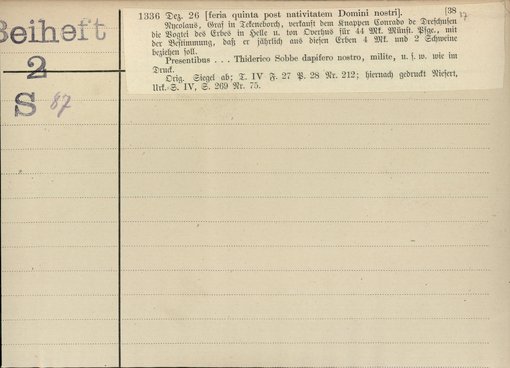 Beiheft
2
S 87
1336 Dez. 26 [feria quinta post nativitatem Domini nostri]. [38
Nycolaus, Graf in Tekeneborch, verkauft dem Knappen Conrado de Dreschusen
die Vogtei des Erbes in Helle u. ton Overhus für 44 Mk. Münst. Pfge., mit
der Bestimmung, daß er jährlich aus diesen Erben 4 Mk. und 2 Schweine
beziehen soll.
Presentibus . . . Thiderico Sobbe dapifero nostro, milite, u. s. w. wie im
Druck.
Orig. Siegel ab; T. IV F. 27 P. 28 Nr. 212; hiernach gedruckt Niesert,
Urk.-S. IV, S. 269 Nr. 75.